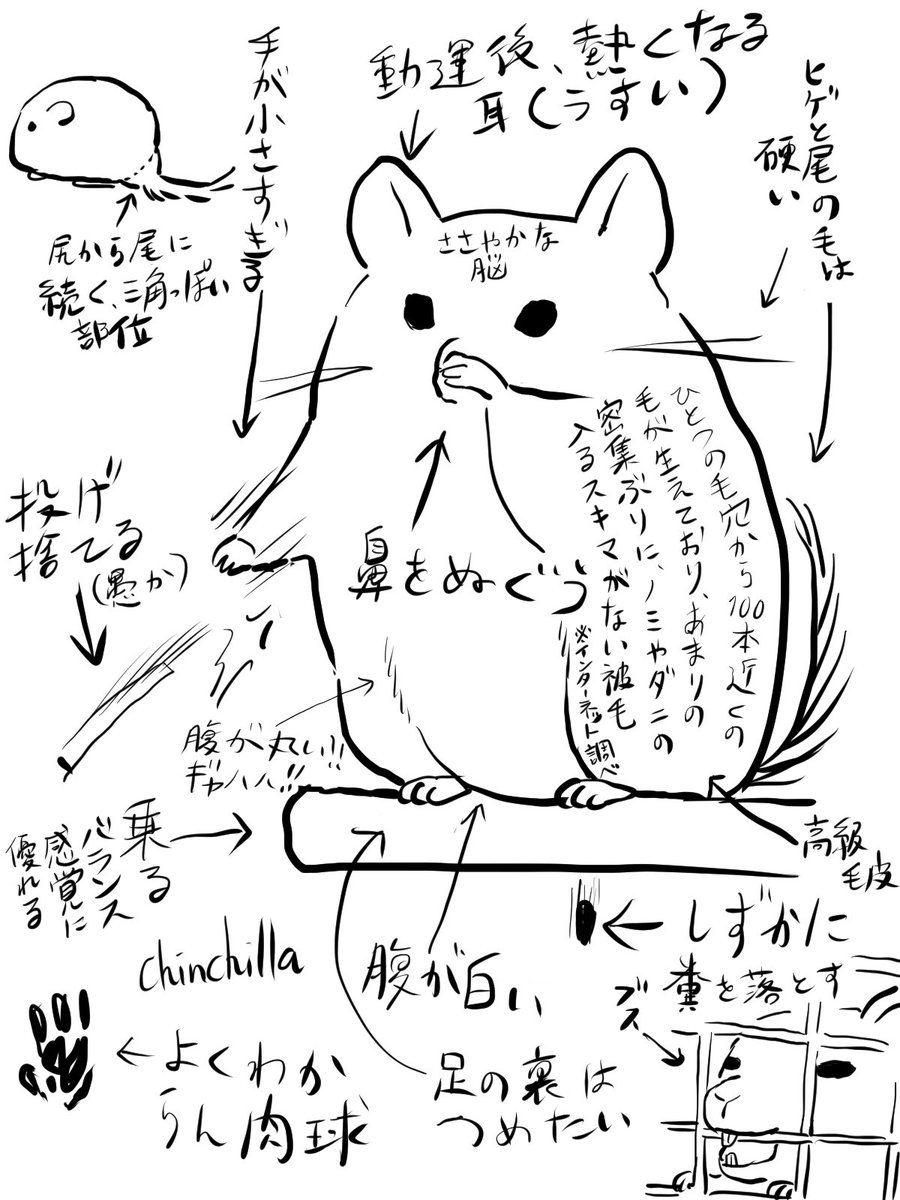 手が小さすぎる
動運後、熱くなる
耳(うすい)
ヒゲと尾の毛は
硬い
ささやかな
脳
尻から尾に
続く、三角っぽい
部位
ひとつの毛穴から100本近くの
毛が生えており、あまりの
密集ぶりに、ノミやダニの
入るスキマがない被毛
※インターネット調べ
投げ
捨てる
(愚か)
鼻をぬぐう
腹が丸い!!
ギャハハ!!
乗る
バランス
感覚に
優れる
高級
毛皮
chinchilla
腹が白い
しずかに
糞を落とす
ブス
よくわか
らん肉球
足の裏は
つめたい